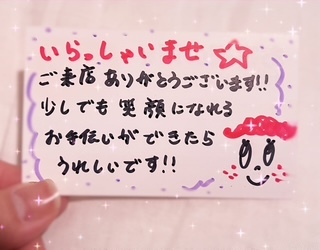 いらっしゃいませ☆
ご来店ありがとうございます!!
少しでも笑顔になれる
お手伝いができたら
うれしいです!!